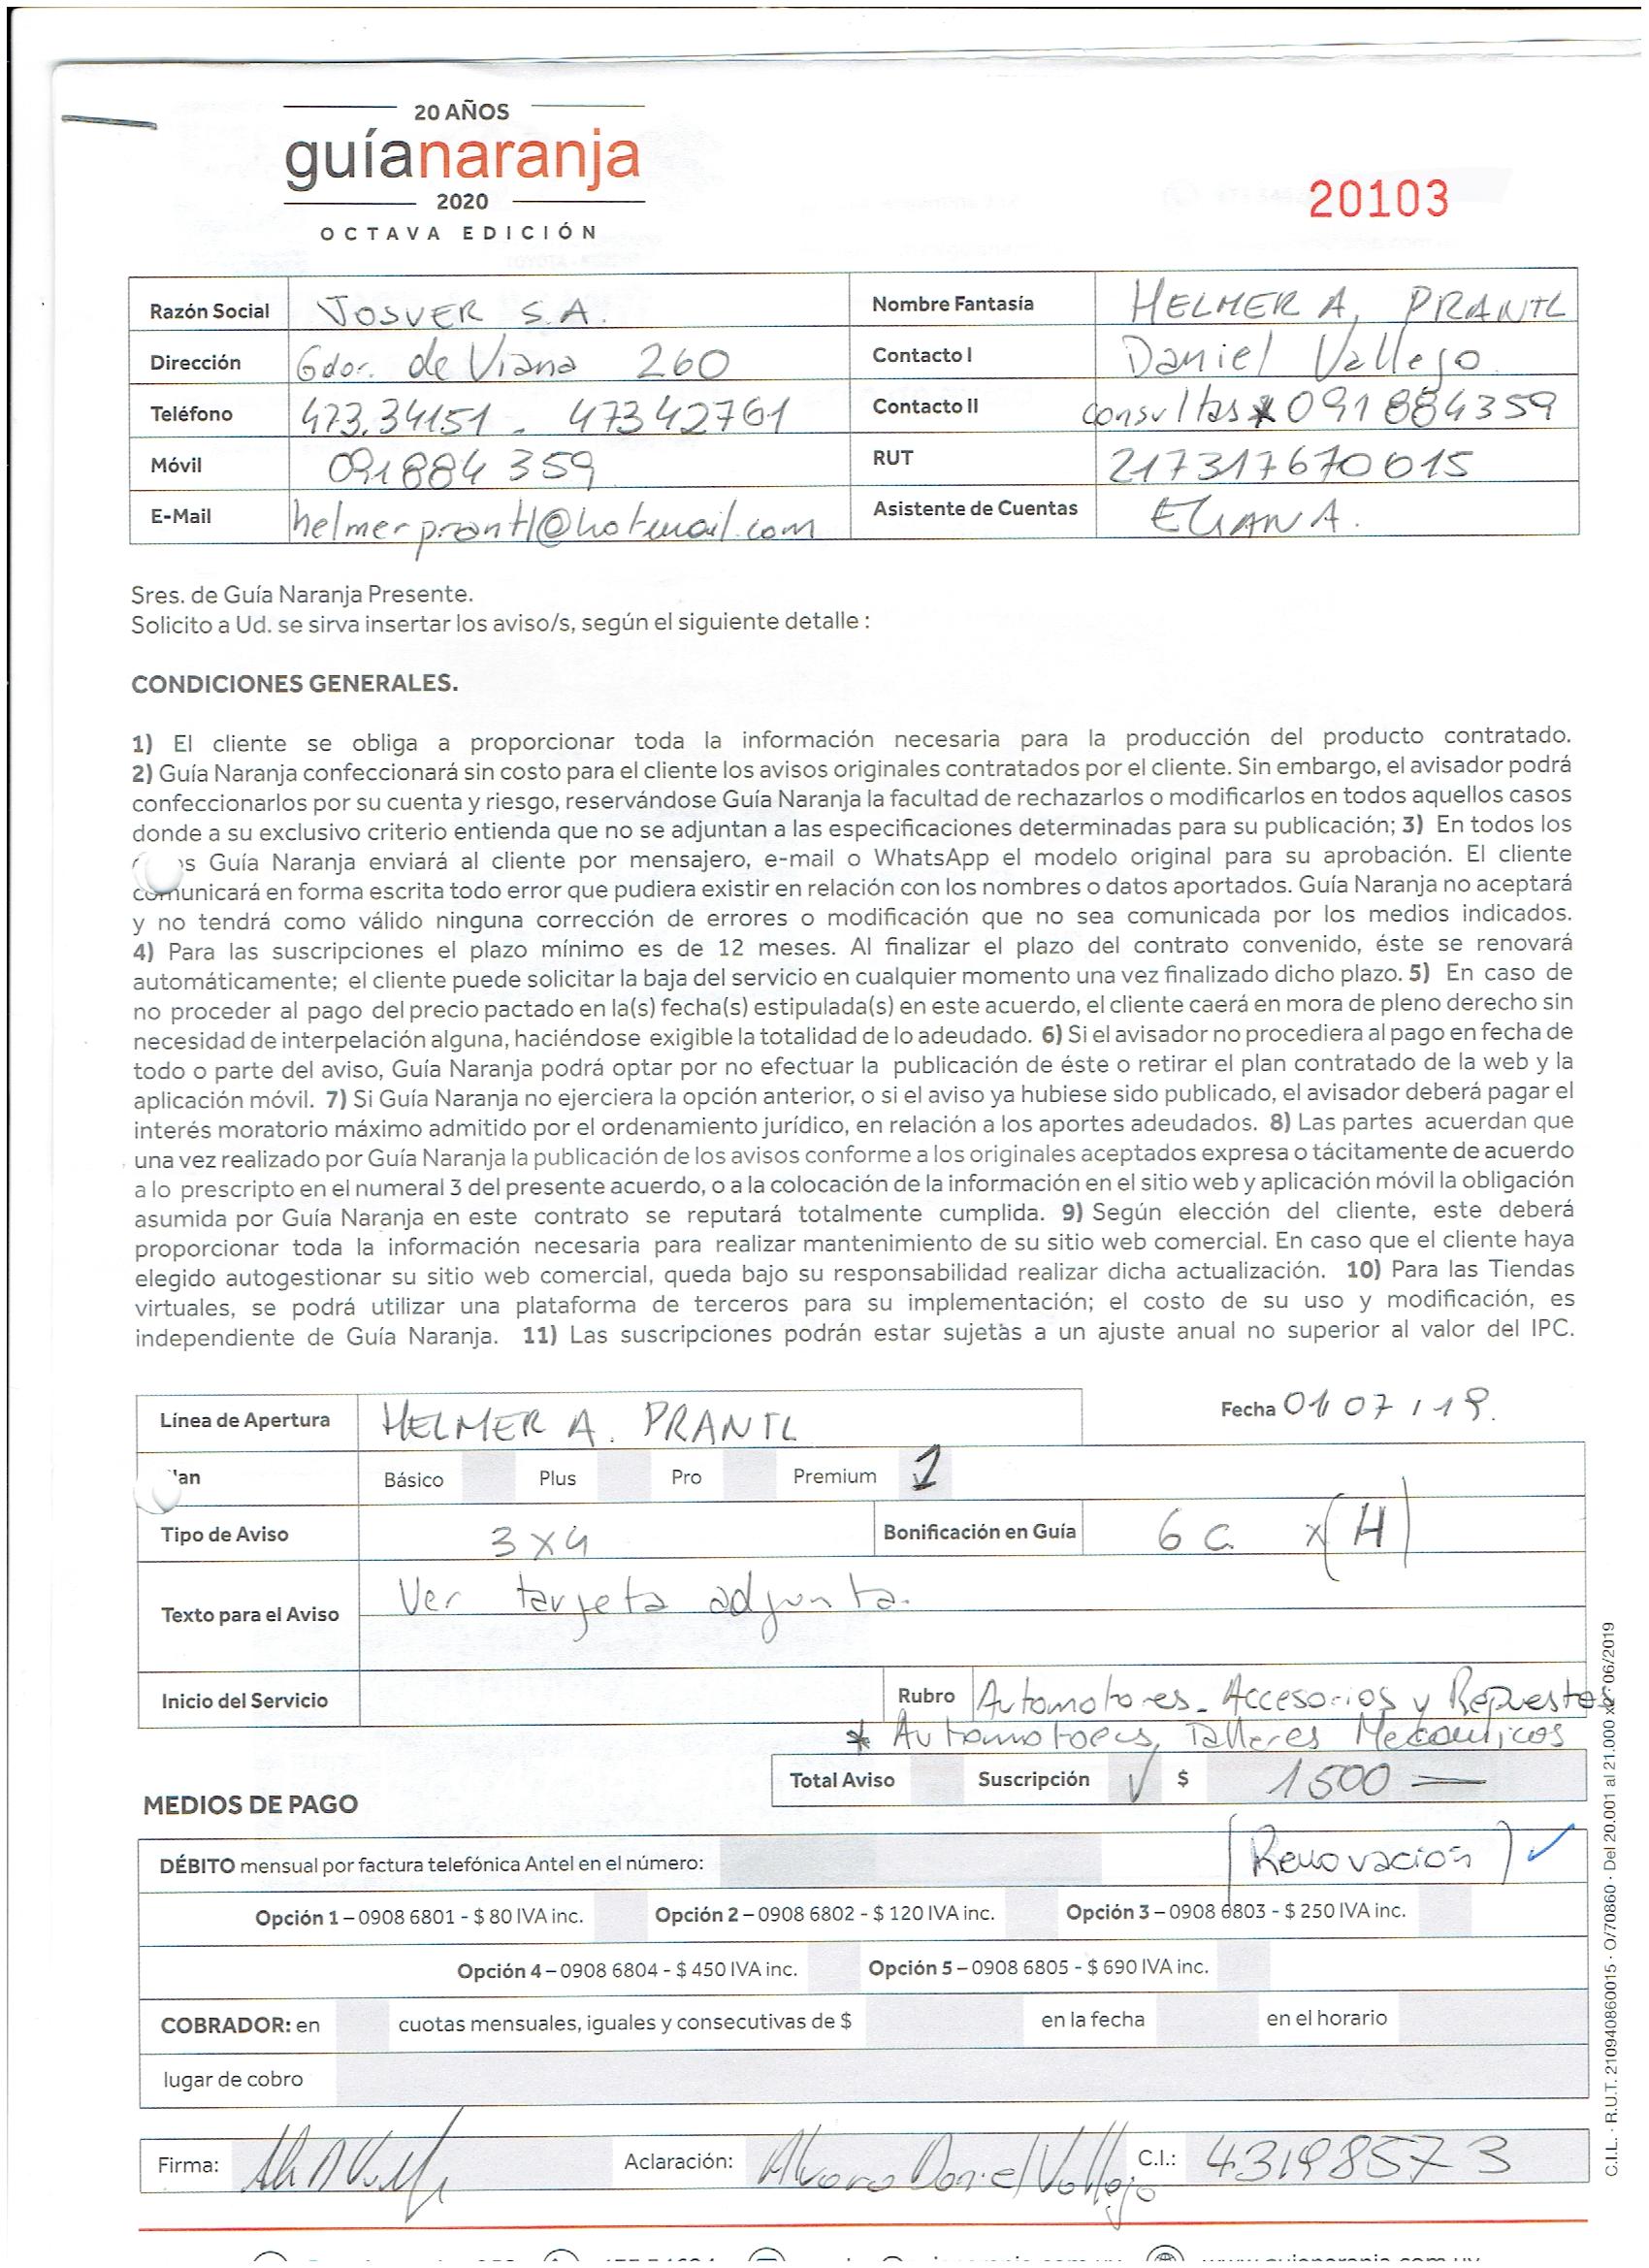 20 AÑOS
guíanaranja
2020
OCTAVA EDICIÓN
20103
Razón Social JOSVER S.A. Nombre Fantasía HELMER A. PRANTL
Dirección Gdor. de Viana 260 Contacto I Daniel Vallejo
Teléfono 473.34151 - 47342761 Contacto II consultas * 091884359
Móvil 091884 359 RUT 217317670015
E-Mail helmerprantl@hotmail.com Asistente de Cuentas ELIANA.
Sres. de Guía Naranja Presente.
Solicito a Ud. se sirva insertar los aviso/s, según el siguiente detalle :
CONDICIONES GENERALES.
1) El cliente se obliga a proporcionar toda la información necesaria para la producción del producto contratado.
2) Guía Naranja confeccionará sin costo para el cliente los avisos originales contratados por el cliente. Sin embargo, el avisador podrá
confeccionarlos por su cuenta y riesgo, reservándose Guía Naranja la facultad de rechazarlos o modificarlos en todos aquellos casos
donde a su exclusivo criterio entienda que no se adjuntan a las especificaciones determinadas para su publicación; 3) En todos los
s Guía Naranja enviará al cliente por mensajero, e-mail o WhatsApp el modelo original para su aprobación. El cliente
comunicará en forma escrita todo error que pudiera existir en relación con los nombres o datos aportados. Guía Naranja no aceptará
y no tendrá como válido ninguna corrección de errores o modificación que no sea comunicada por los medios indicados.
4) Para las suscripciones el plazo mínimo es de 12 meses. Al finalizar el plazo del contrato convenido, éste se renovará
automáticamente; el cliente puede solicitar la baja del servicio en cualquier momento una vez finalizado dicho plazo. 5) En caso de
no proceder al pago del precio pactado en la(s) fecha(s) estipulada(s) en este acuerdo, el cliente caerá en mora de pleno derecho sin
necesidad de interpelación alguna, haciéndose exigible la totalidad de lo adeudado. 6) Si el avisador no procediera al pago en fecha de
todo o parte del aviso, Guía Naranja podrá optar por no efectuar la publicación de éste o retirar el plan contratado de la web y la
aplicación móvil. 7) Si Guía Naranja no ejerciera la opción anterior, o si el aviso ya hubiese sido publicado, el avisador deberá pagar el
interés moratorio máximo admitido por el ordenamiento jurídico, en relación a los aportes adeudados. 8) Las partes acuerdan que
una vez realizado por Guía Naranja la publicación de los avisos conforme a los originales aceptados expresa o tácitamente de acuerdo
a lo prescripto en el numeral 3 del presente acuerdo, o a la colocación de la información en el sitio web y aplicación móvil la obligación
asumida por Guía Naranja en este contrato se reputará totalmente cumplida. 9) Según elección del cliente, este deberá
proporcionar toda la información necesaria para realizar mantenimiento de su sitio web comercial. En caso que el cliente haya
elegido autogestionar su sitio web comercial, queda bajo su responsabilidad realizar dicha actualización. 10) Para las Tiendas
virtuales, se podrá utilizar una plataforma de terceros para su implementación; el costo de su uso y modificación, es
independiente de Guía Naranja. 11) Las suscripciones podrán estar sujetas a un ajuste anual no superior al valor del IPC.
Línea de Apertura HELMER A. PRANTL Fecha 01/07/19.
lan Básico Plus Pro Premium 1
Tipo de Aviso 3x4 Bonificación en Guía 6 c. x (H)
Texto para el Aviso Ver tarjeta adjunta.
Inicio del Servicio Rubro Automotores - Accesorios y Repuestos
* Automotores, Talleres Mecánicos
Total Aviso Suscripción ✓ $ 1500
MEDIOS DE PAGO
DÉBITO mensual por factura telefónica Antel en el número: (Renovación) ✓
Opción 1 – 0908 6801 - $ 80 IVA inc. Opción 2 – 0908 6802 - $ 120 IVA inc. Opción 3 – 0908 6803 - $ 250 IVA inc.
Opción 4 – 0908 6804 - $ 450 IVA inc. Opción 5 – 0908 6805 - $ 690 IVA inc.
COBRADOR: en cuotas mensuales, iguales y consecutivas de $ en la fecha en el horario
lugar de cobro
Firma: Aclaración: Alvaro Daniel Vallejo C.I.: 4319857 3
C.I.L. · R.U.T. 210940860015 · O/70860 · Del 20.001 al 21.000 x 06/2019